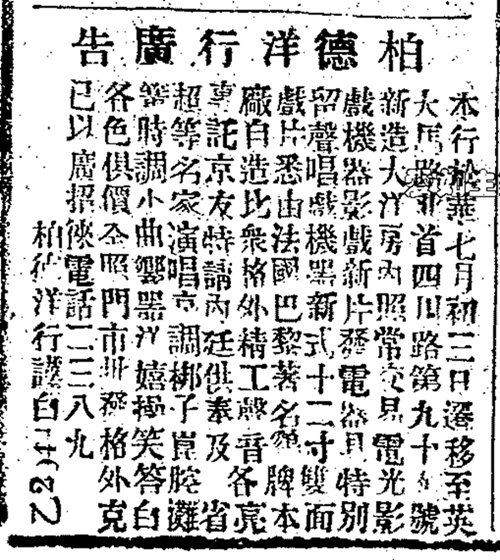 柏德洋行廣告
本行於華七月初三日遷移至英
大馬路北首四川路第九十五號
新造大洋房內照常交易電光影
戲機器影戲新片發電器具特別
留聲唱戲機器新式十二寸雙面
戲片悉由法國巴黎著名牌本
廠自造比衆格外精工聲音各亮
專託京友特請內廷供奉及省
超等名家演唱京調梆子崑腔灘
簧時調小曲響器洋嬉操笑答白
各色俱價全照門市批發格外克
已以廣招徠電話八九
柏德洋行謹白